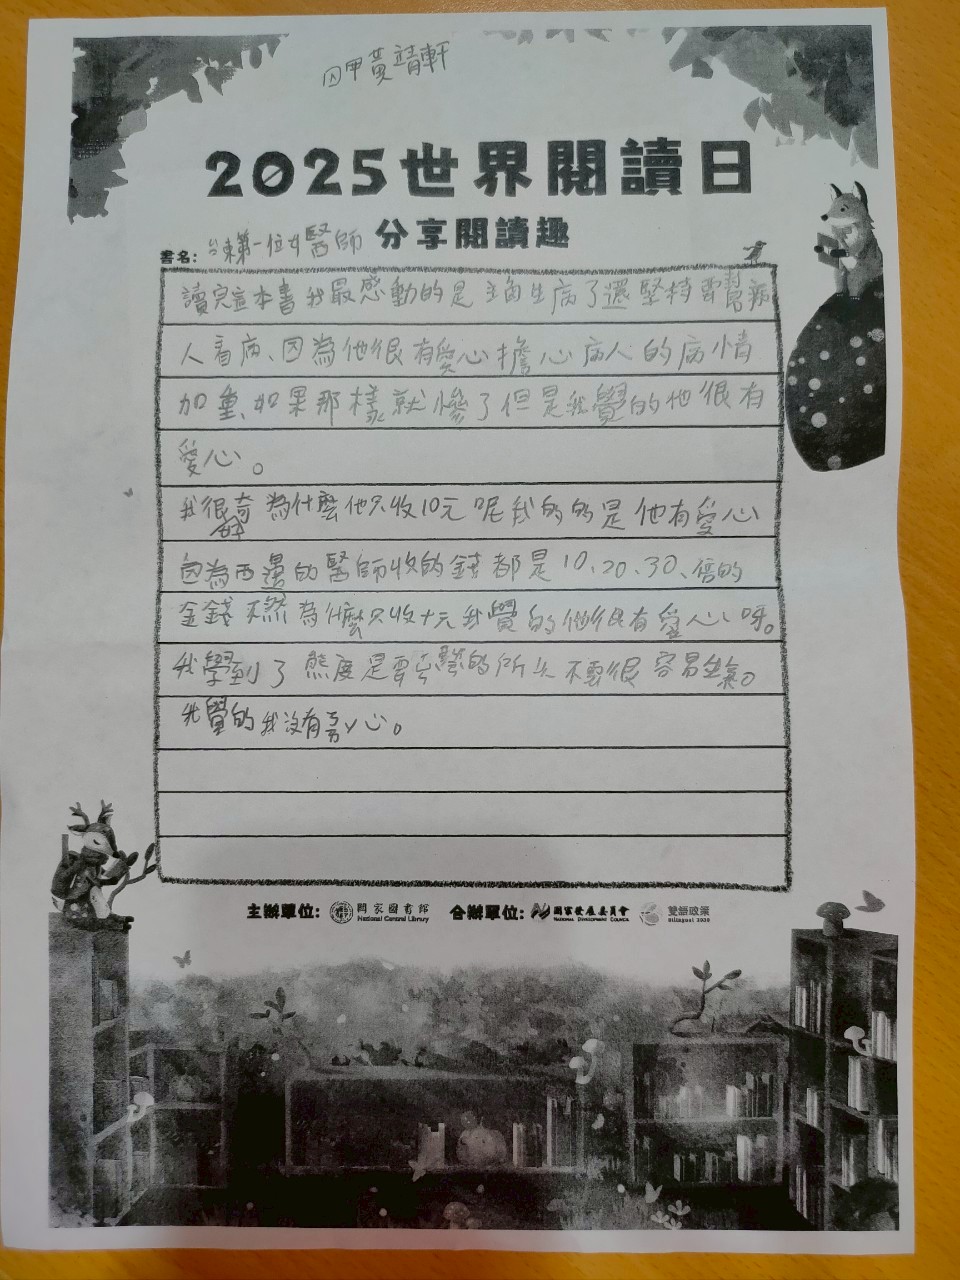 四甲黃靖軒
2025世界閱讀日
分享閱讀趣
書名：台東第一位女醫師
讀完這本書我最感動的是主角生病了還堅持要幫病
人看病、因為他很有愛心擔心病人的病情
加重、如果那樣就慘了但是我覺的他很有
愛心。
我很好奇為什麼他只收10元呢我的的是他有愛心
因為西邊的醫師收的錢都是10、20、30、倍的
金錢不然為什麼只收十元我覺的他很有愛心呀。
我學到了態度是要的所以不要很容易生氣。
我覺的我沒有心。
主辦單位：國家圖書館
National Central Library
合辦單位：國家發展委員會
NATIONAL DEVELOPMENT COUNCIL
雙語政策
Bilingual 2030